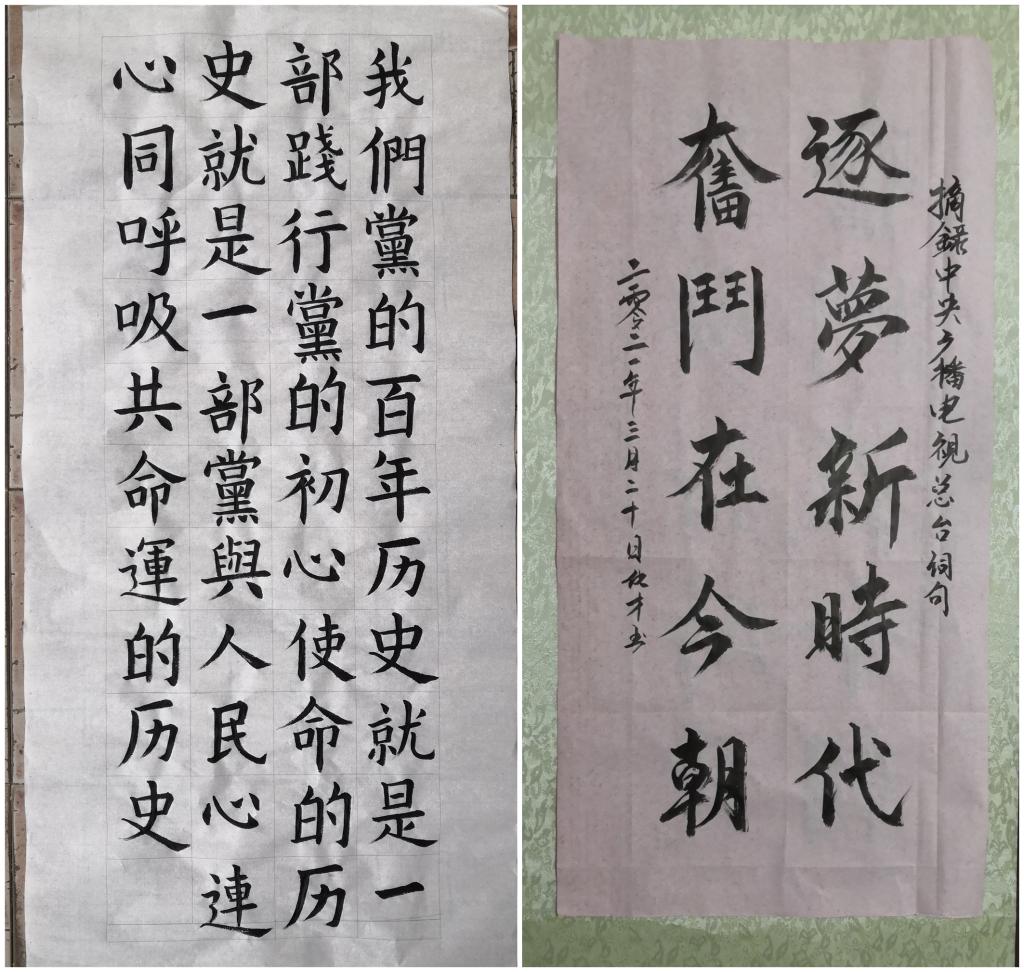 我們黨的百年历史就是一
部踐行黨的初心使命的历
史就是一部黨與人民心連
心同呼吸共命運的历史
摘録中央广播电視总台词句
逐夢新時代
奮鬥在今朝
二零二一年三月二十日